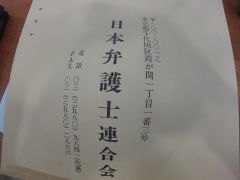 〒一〇〇-〇〇一三
東京都千代田区霞が関一丁目一番三号
日本弁護士連合会
電話 〇三(三五八〇)九八四一(代表)
FAX 〇三(三五八〇)二八六六